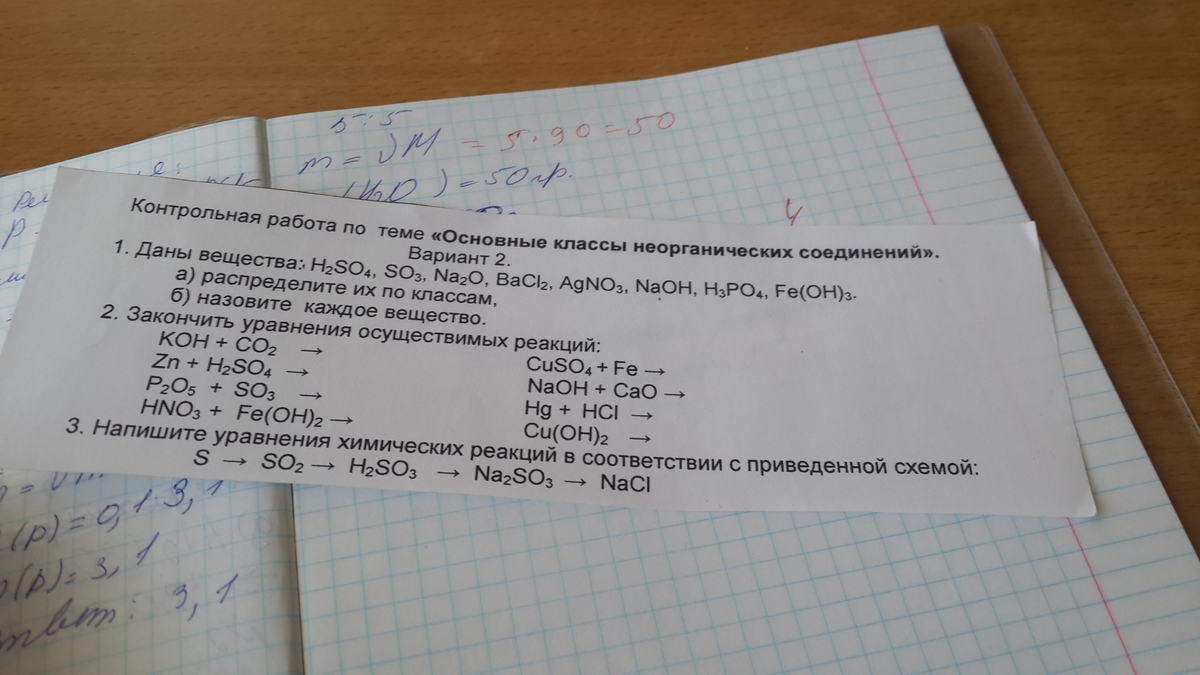 5:5
m = νM = 5·90=50
(H₂O) = 50гр.
4
Контрольная работа по теме «Основные классы неорганических соединений».
Вариант 2.
1. Даны вещества: H₂SO₄, SO₃, Na₂O, BaCl₂, AgNO₃, NaOH, H₃PO₄, Fe(OH)₃.
а) распределите их по классам,
б) назовите каждое вещество.
2. Закончить уравнения осуществимых реакций:
KOH + CO₂ →
Zn + H₂SO₄ →
P₂O₅ + SO₃ →
HNO₃ + Fe(OH)₂ →
CuSO₄ + Fe →
NaOH + CaO →
Hg + HCl →
Cu(OH)₂ →
3. Напишите уравнения химических реакций в соответствии с приведенной схемой:
S → SO₂ → H₂SO₃ → Na₂SO₃ → NaCl
(p) = 0,1·3,1
(p) = 3,1
твет: 3,1